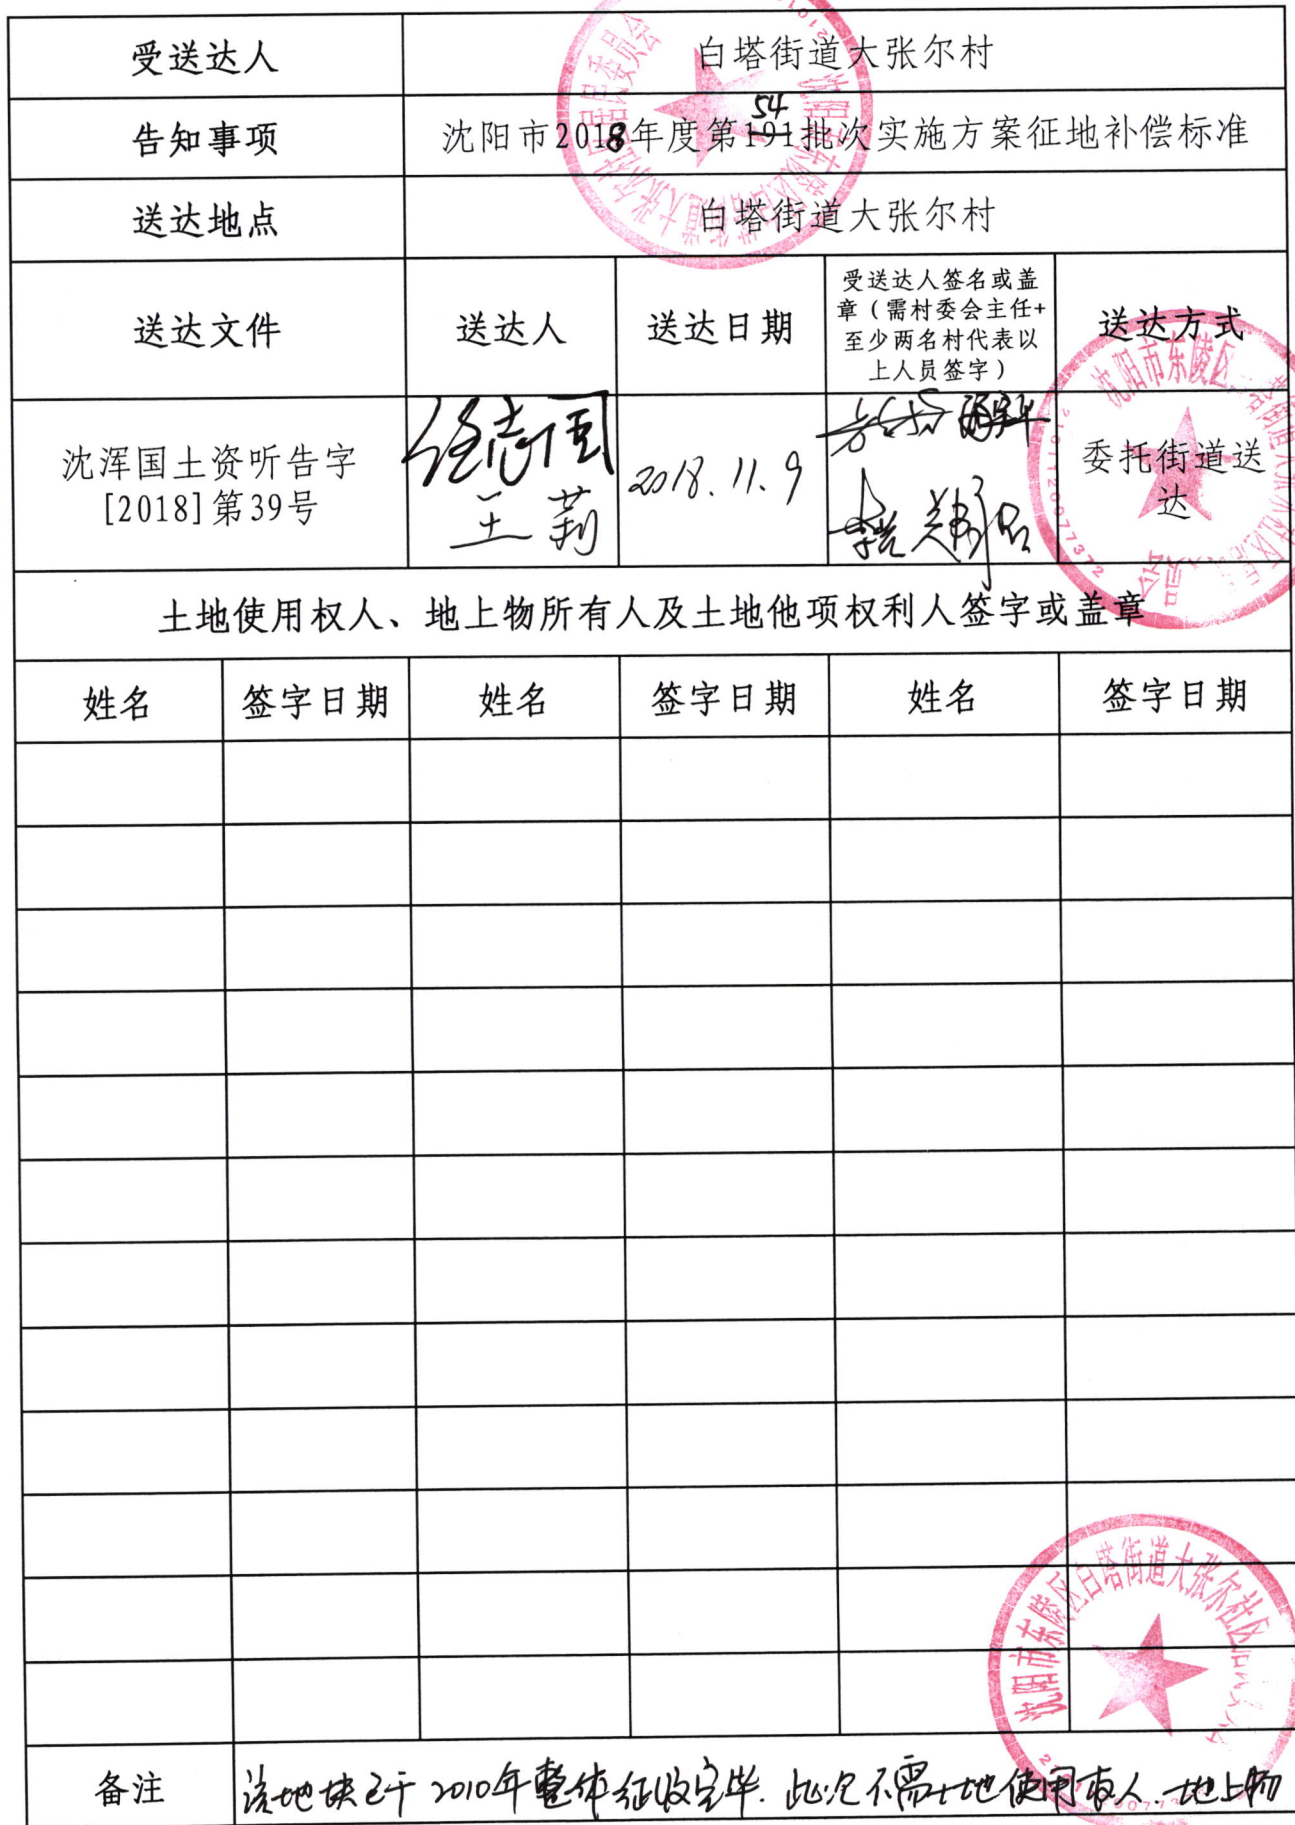 受送达人 白塔街道大张尔村
告知事项 沈阳市2018年度第191批次实施方案征地补偿标准
54
送达地点 白塔街道大张尔村
送达文件 送达人 送达日期 受送达人签名或盖
章（需村委会主任+
至少两名村代表以
上人员签字） 送达方式
沈浑国土资听告字
[2018]第39号
任志国
王莉
2018.11.9
委托街道送
达
土地使用权人、地上物所有人及土地他项权利人签字或盖章
姓名 签字日期 姓名 签字日期 姓名 签字日期
备注 该地块已于2010年整体征收完毕.此次不需土地使用权人.地上物
沈阳市东陵区白塔街道大张尔社区居民委员会
沈阳市东陵区 塔街道大张尔社区
2101120077372
沈阳市东陵区白塔街道大张尔社区